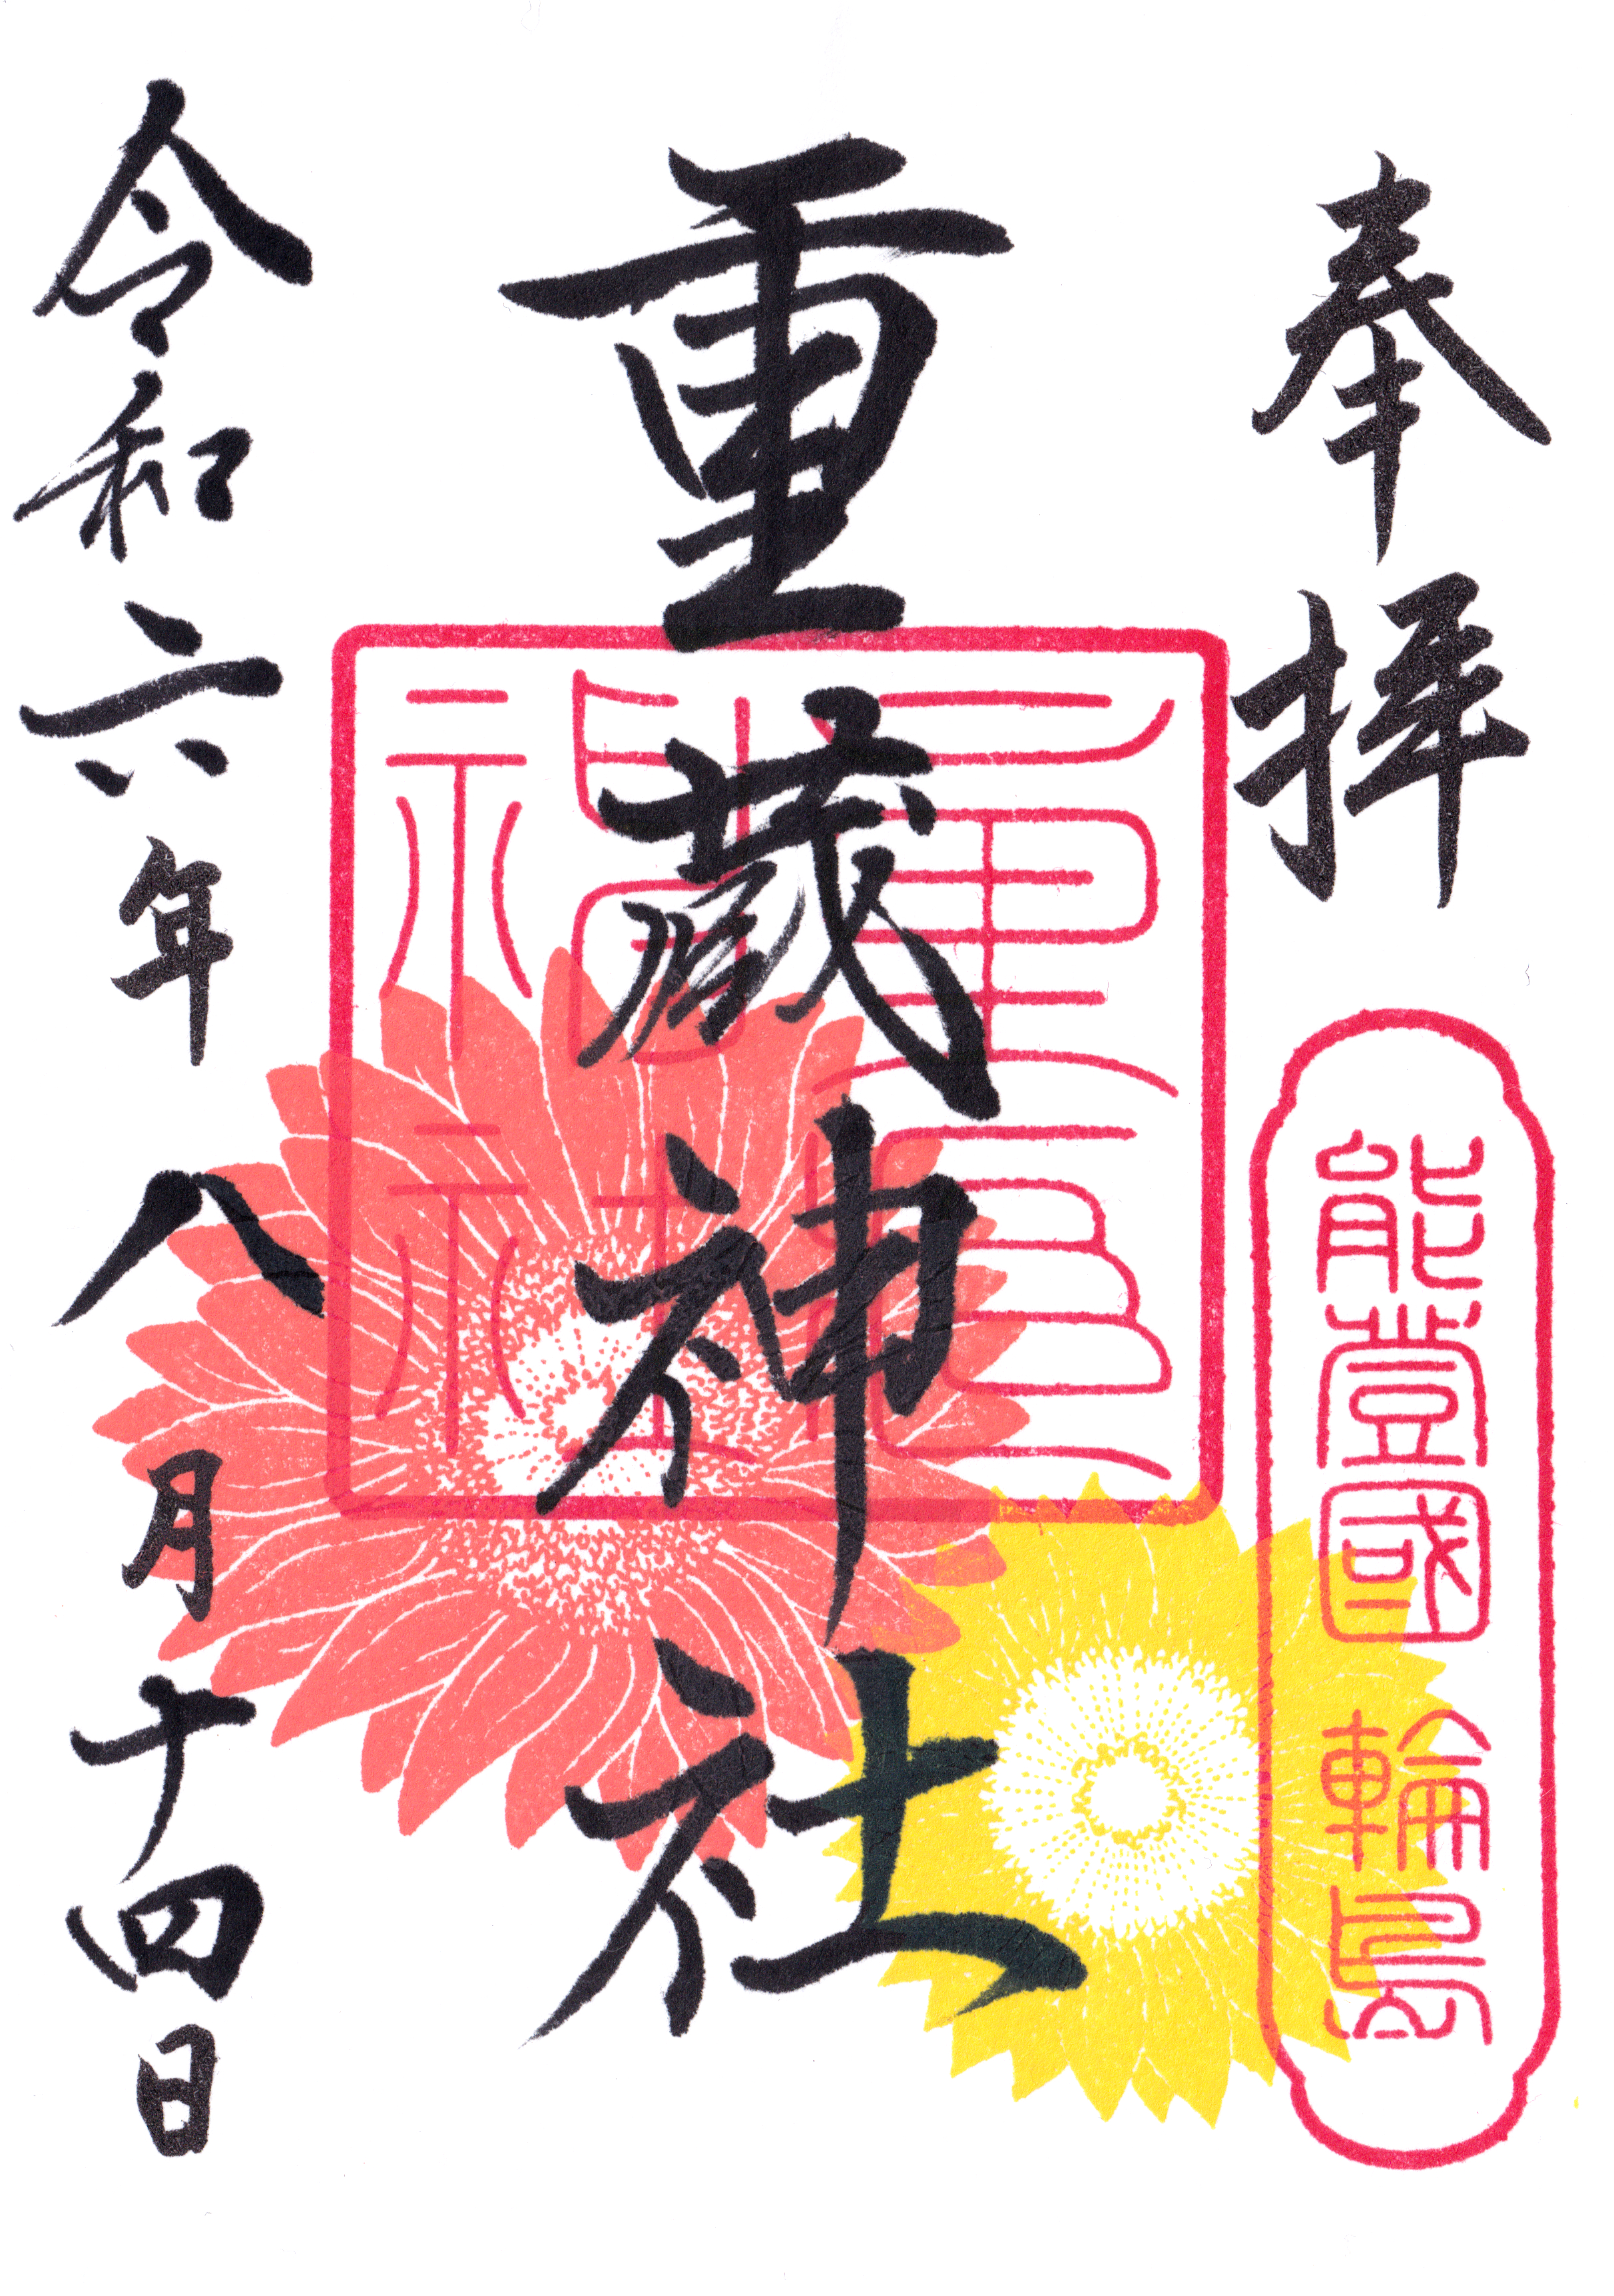 奉拝
能登國 輪島
重蔵神社
重蔵神社
令和六年八月十四日